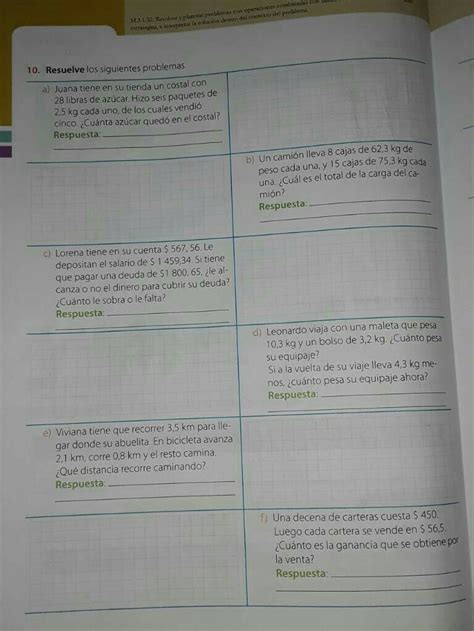 M.3.1.32. Resolver y plantear problemas con operaciones combinadas con
estrategias, e interpretar la solución dentro del contexto del problema.
10. Resuelve los siguientes problemas.
a) Juana tiene en su tienda un costal con
28 libras de azúcar. Hizo seis paquetes de
2,5 kg cada uno, de los cuales vendió
cinco. ¿Cuánta azúcar quedó en el costal?
Respuesta:
b) Un camión lleva 8 cajas de 62,3 kg de
peso cada una, y 15 cajas de 75,3 kg cada
una. ¿Cuál es el total de la carga del ca-
mión?
Respuesta:
c) Lorena tiene en su cuenta $ 567, 56. Le
depositan el salario de $ 1 459,34. Si tiene
que pagar una deuda de $1 800, 65, ¿le al-
canza o no el dinero para cubrir su deuda?
¿Cuánto le sobra o le falta?
Respuesta:
d) Leonardo viaja con una maleta que pesa
10,3 kg y un bolso de 3,2 kg. ¿Cuánto pesa
su equipaje?
Si a la vuelta de su viaje lleva 4,3 kg me-
nos, ¿cuánto pesa su equipaje ahora?
Respuesta:
e) Viviana tiene que recorrer 3,5 km para lle-
gar donde su abuelita. En bicicleta avanza
2,1 km, corre 0,8 km y el resto camina.
¿Qué distancia recorre caminando?
Respuesta:
f) Una decena de carteras cuesta $ 450.
Luego cada cartera se vende en $ 56,5.
¿Cuánto es la ganancia que se obtiene por
la venta?
Respuesta: